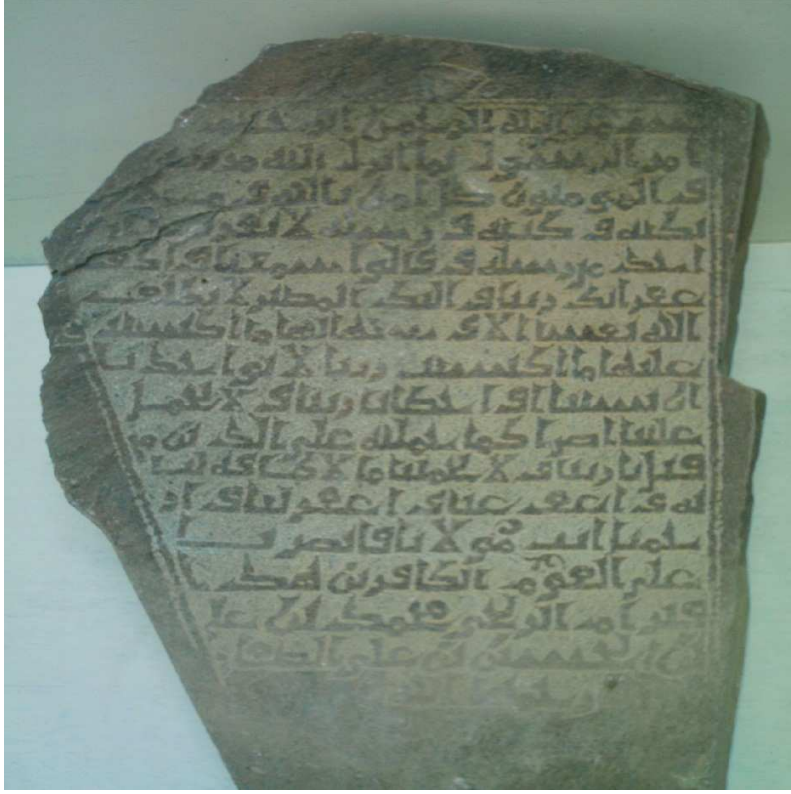 بسم الله الرحمن الرحيم
امن الرسول بما انزل اليه من ربه
و المو منون كل امن بالله و م
ئكته و كتبه و رسله لا نفرق
احد من رسله و قالوا سمعنا و ا
غفرانك ربنا و اليك المصير لا يكلف
الله نفسا الا و سعها لها ما كسبت و
عليها ما اكتسبت ربنا لا تواخذنا
ان نسينا او اخطانا ربنا و لا تحمل
علينا اصرا كما حملته على الذين من
قبلنا ربنا و لا تحملنا ما لا طاقة لنا
به و اعف عنا و اغفر لنا و ار
حمنا انت مو لا نا فانصر نا
على القوم الكافرين هذا
قبر محمد بن
بن الحسين بن علي
رحمة الله